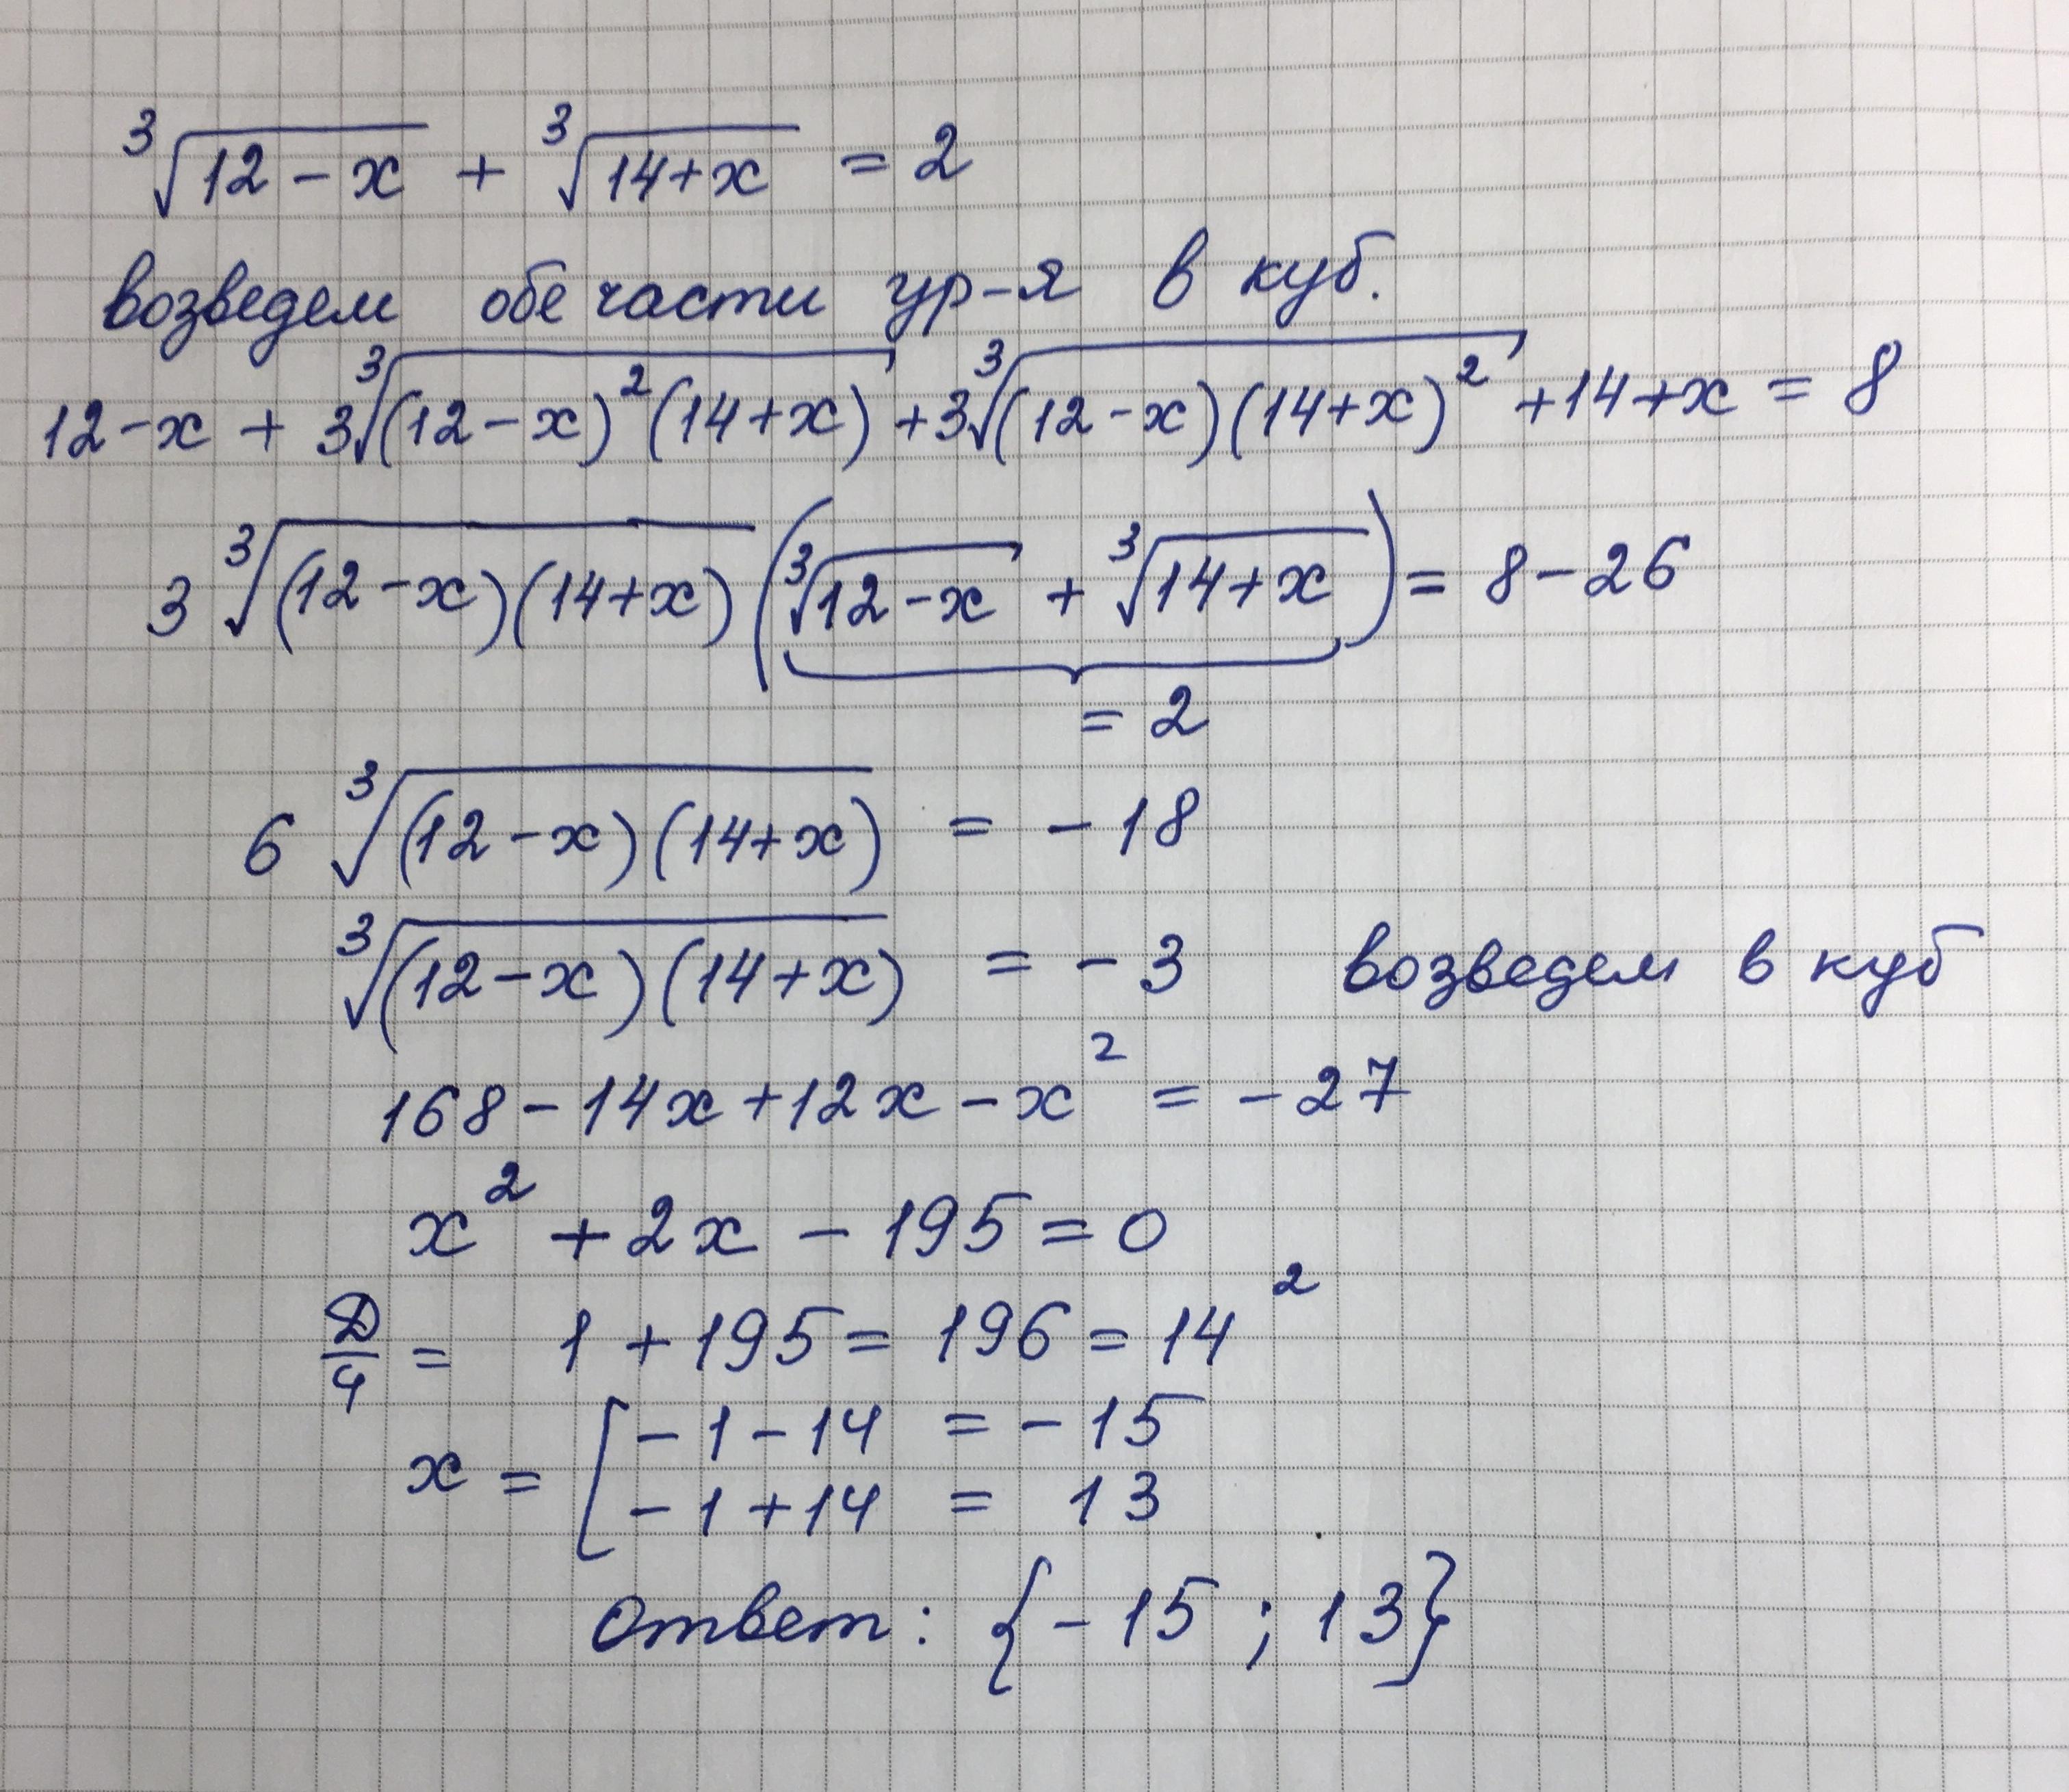 ∛(12-x) + ∛(14+x) = 2
возведем обе части ур-я в куб.
12-x + 3∛((12-x)²(14+x)) + 3∛((12-x)(14+x)²) + 14+x = 8
3∛((12-x)(14+x)) (∛(12-x) + ∛(14+x)) = 8-26
= 2
6∛((12-x)(14+x)) = -18
∛((12-x)(14+x)) = -3 возведем в куб
168-14x+12x-x² = -27
x² + 2x - 195 = 0
D/4 = 1 + 195 = 196 = 14²
x = [ -1-14 = -15
-1+14 = 13
Ответ: {-15 ; 13}